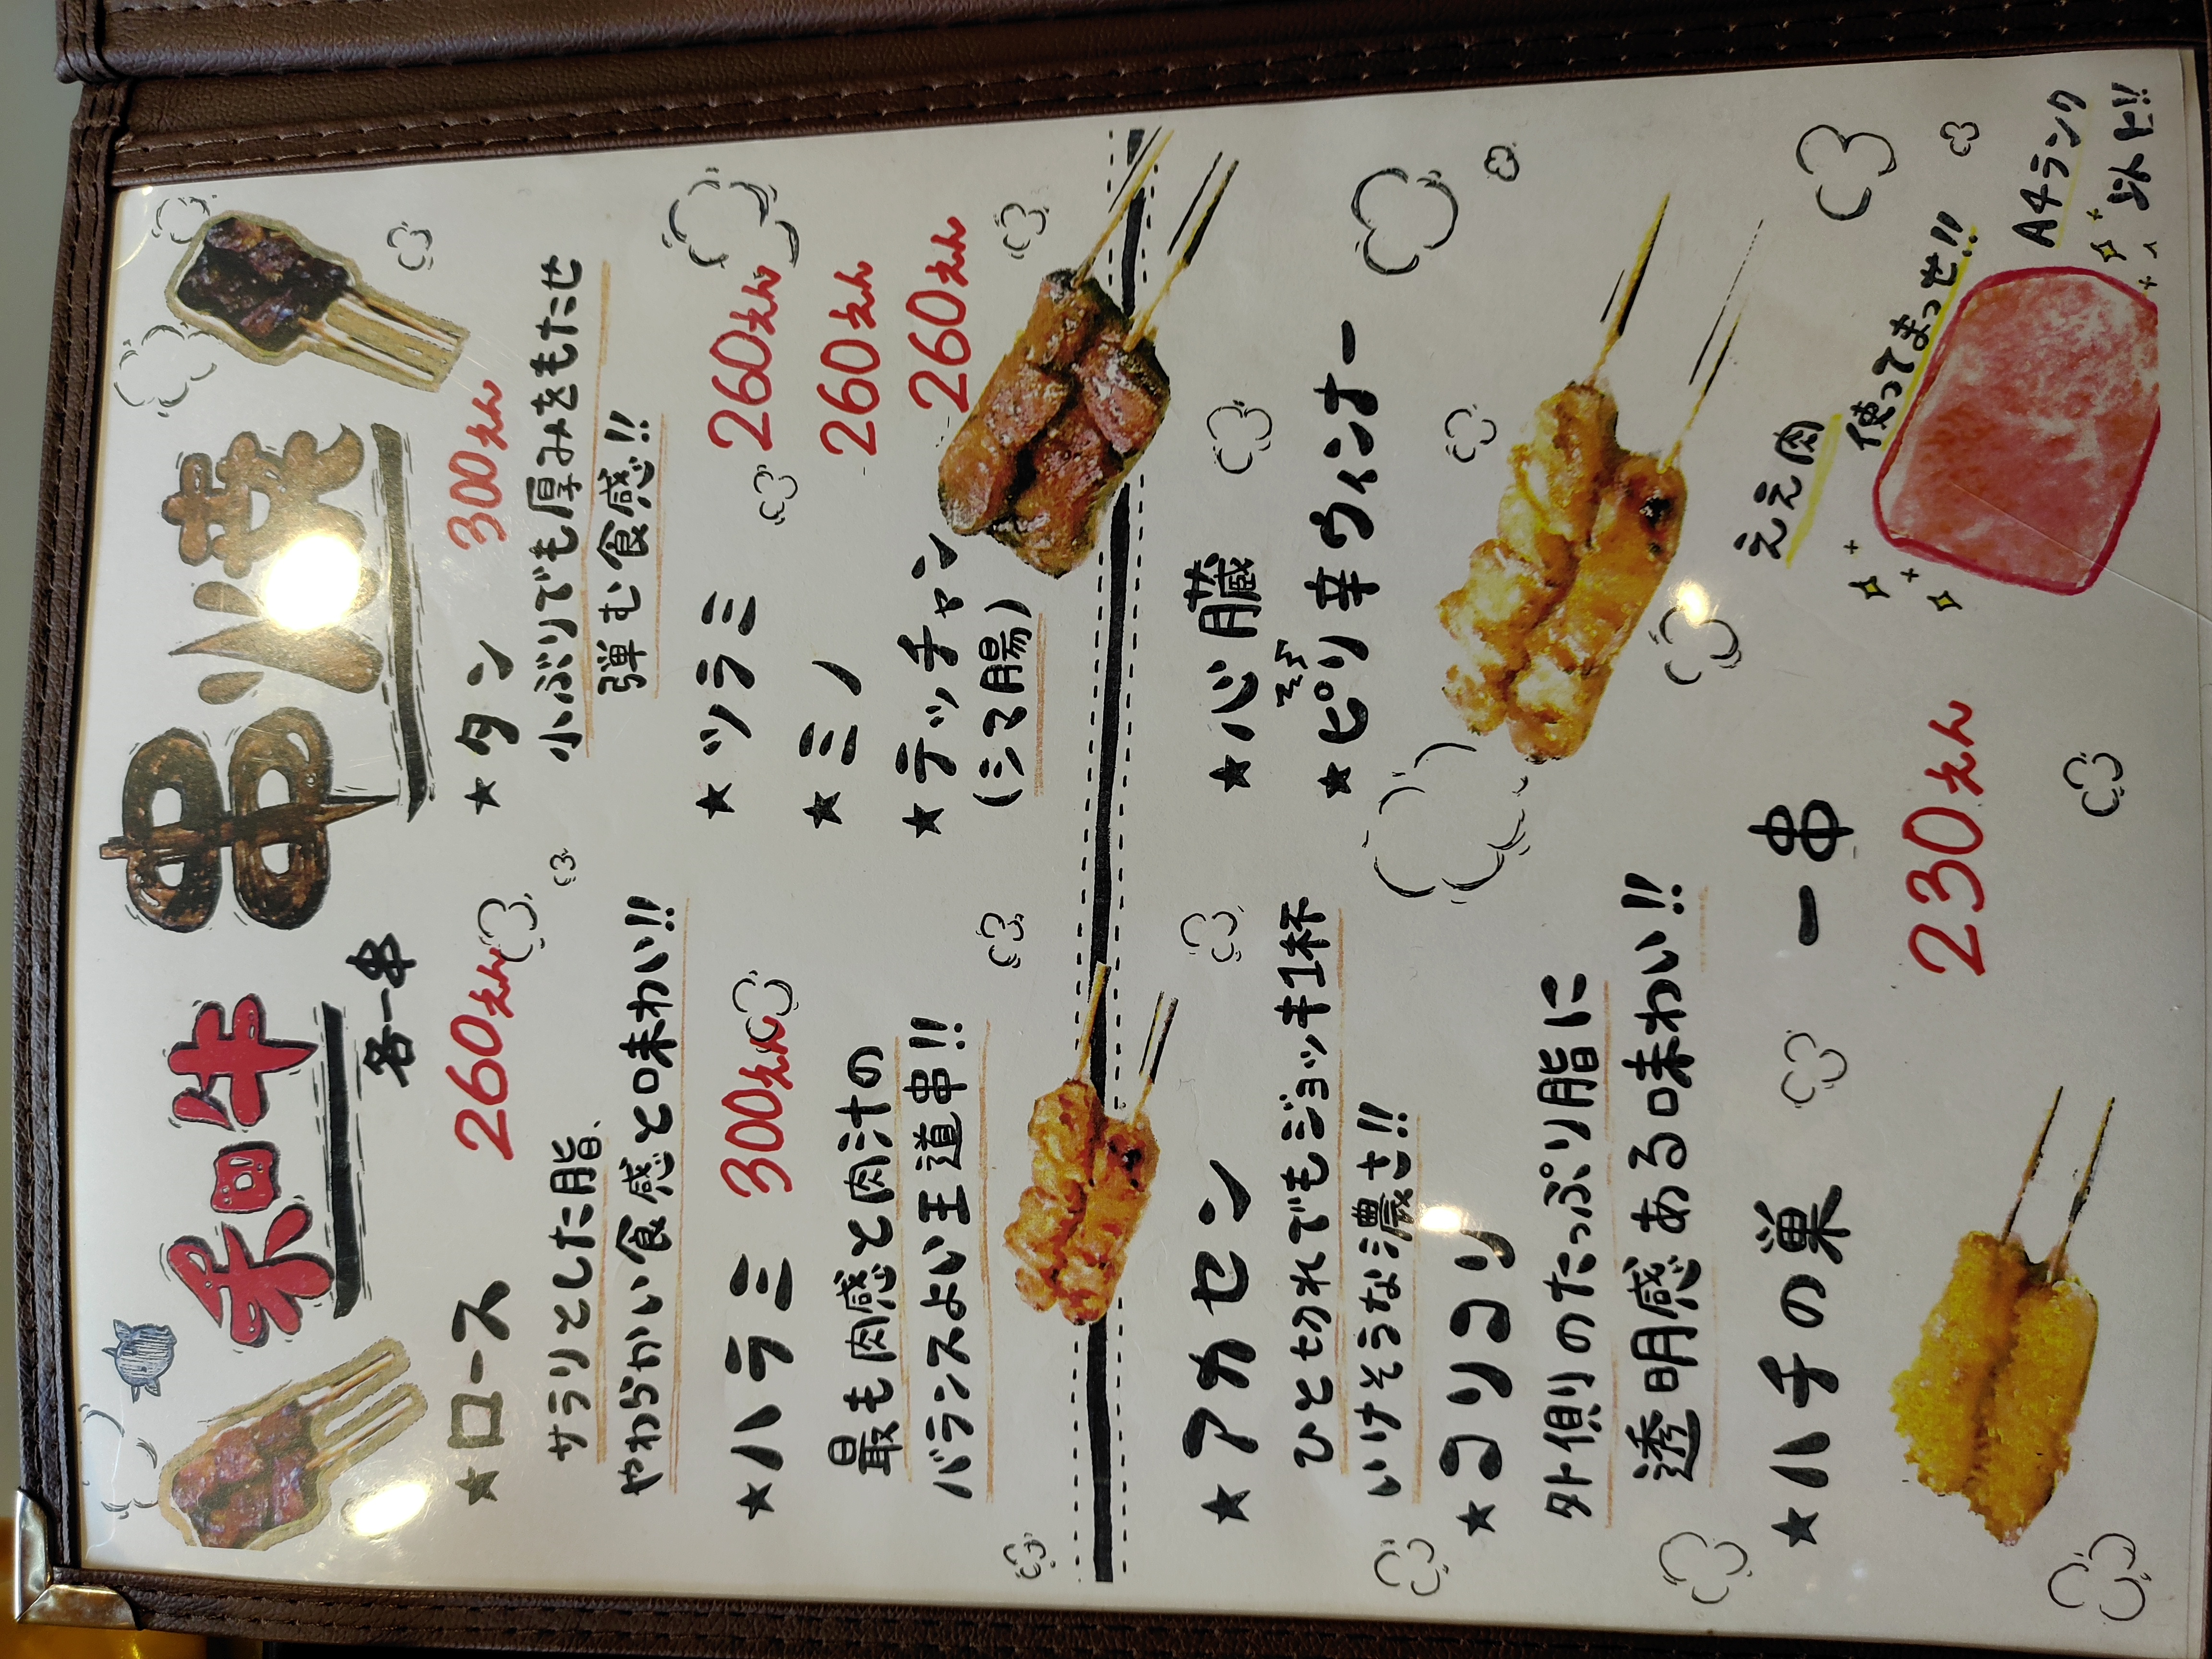 和牛 串焼
各一串
★ロース 260えん
サラリとした脂、
やわらかい食感と味わい!!
★ハラミ 300えん
最も肉感と肉汁の
バランスよい王道串!!
★タン 300えん
小ぶりでも厚みをもたせ
弾む食感!!
★ツラミ 260えん
★ミノ 260えん
★テッチャン 260えん
(シマ腸)
★アカセン
ひと切れでもジョッキ1杯
いけそうな濃さ!!
★コリコリ
外側のたっぷり脂に
透明感ある味わい!!
★ハチの巣
★心臓
★ピリ辛ウィンナー
一串
230えん
ええ肉
使ってまっせ!!
A4ランク
以上!!